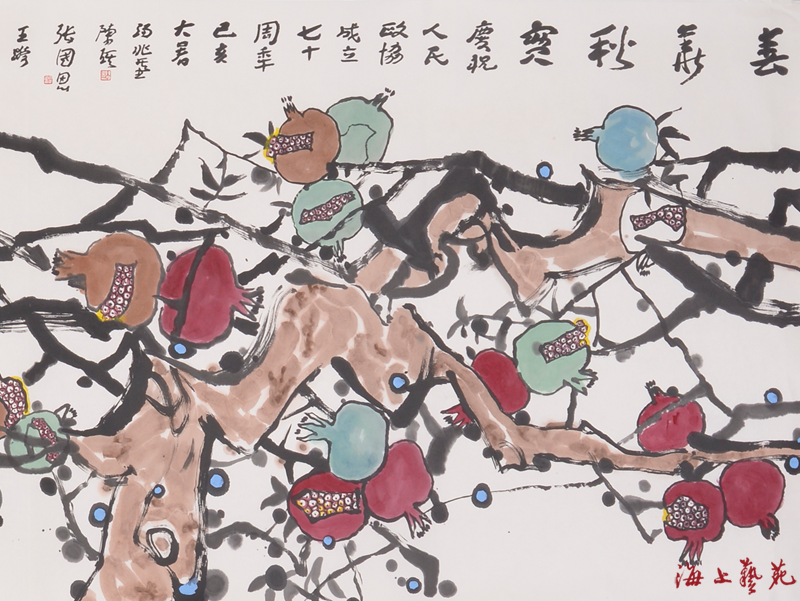 春
華
秋
實
慶祝
人民
政協
成立
七十
周年
己亥
大暑
張國恩
海上藝苑